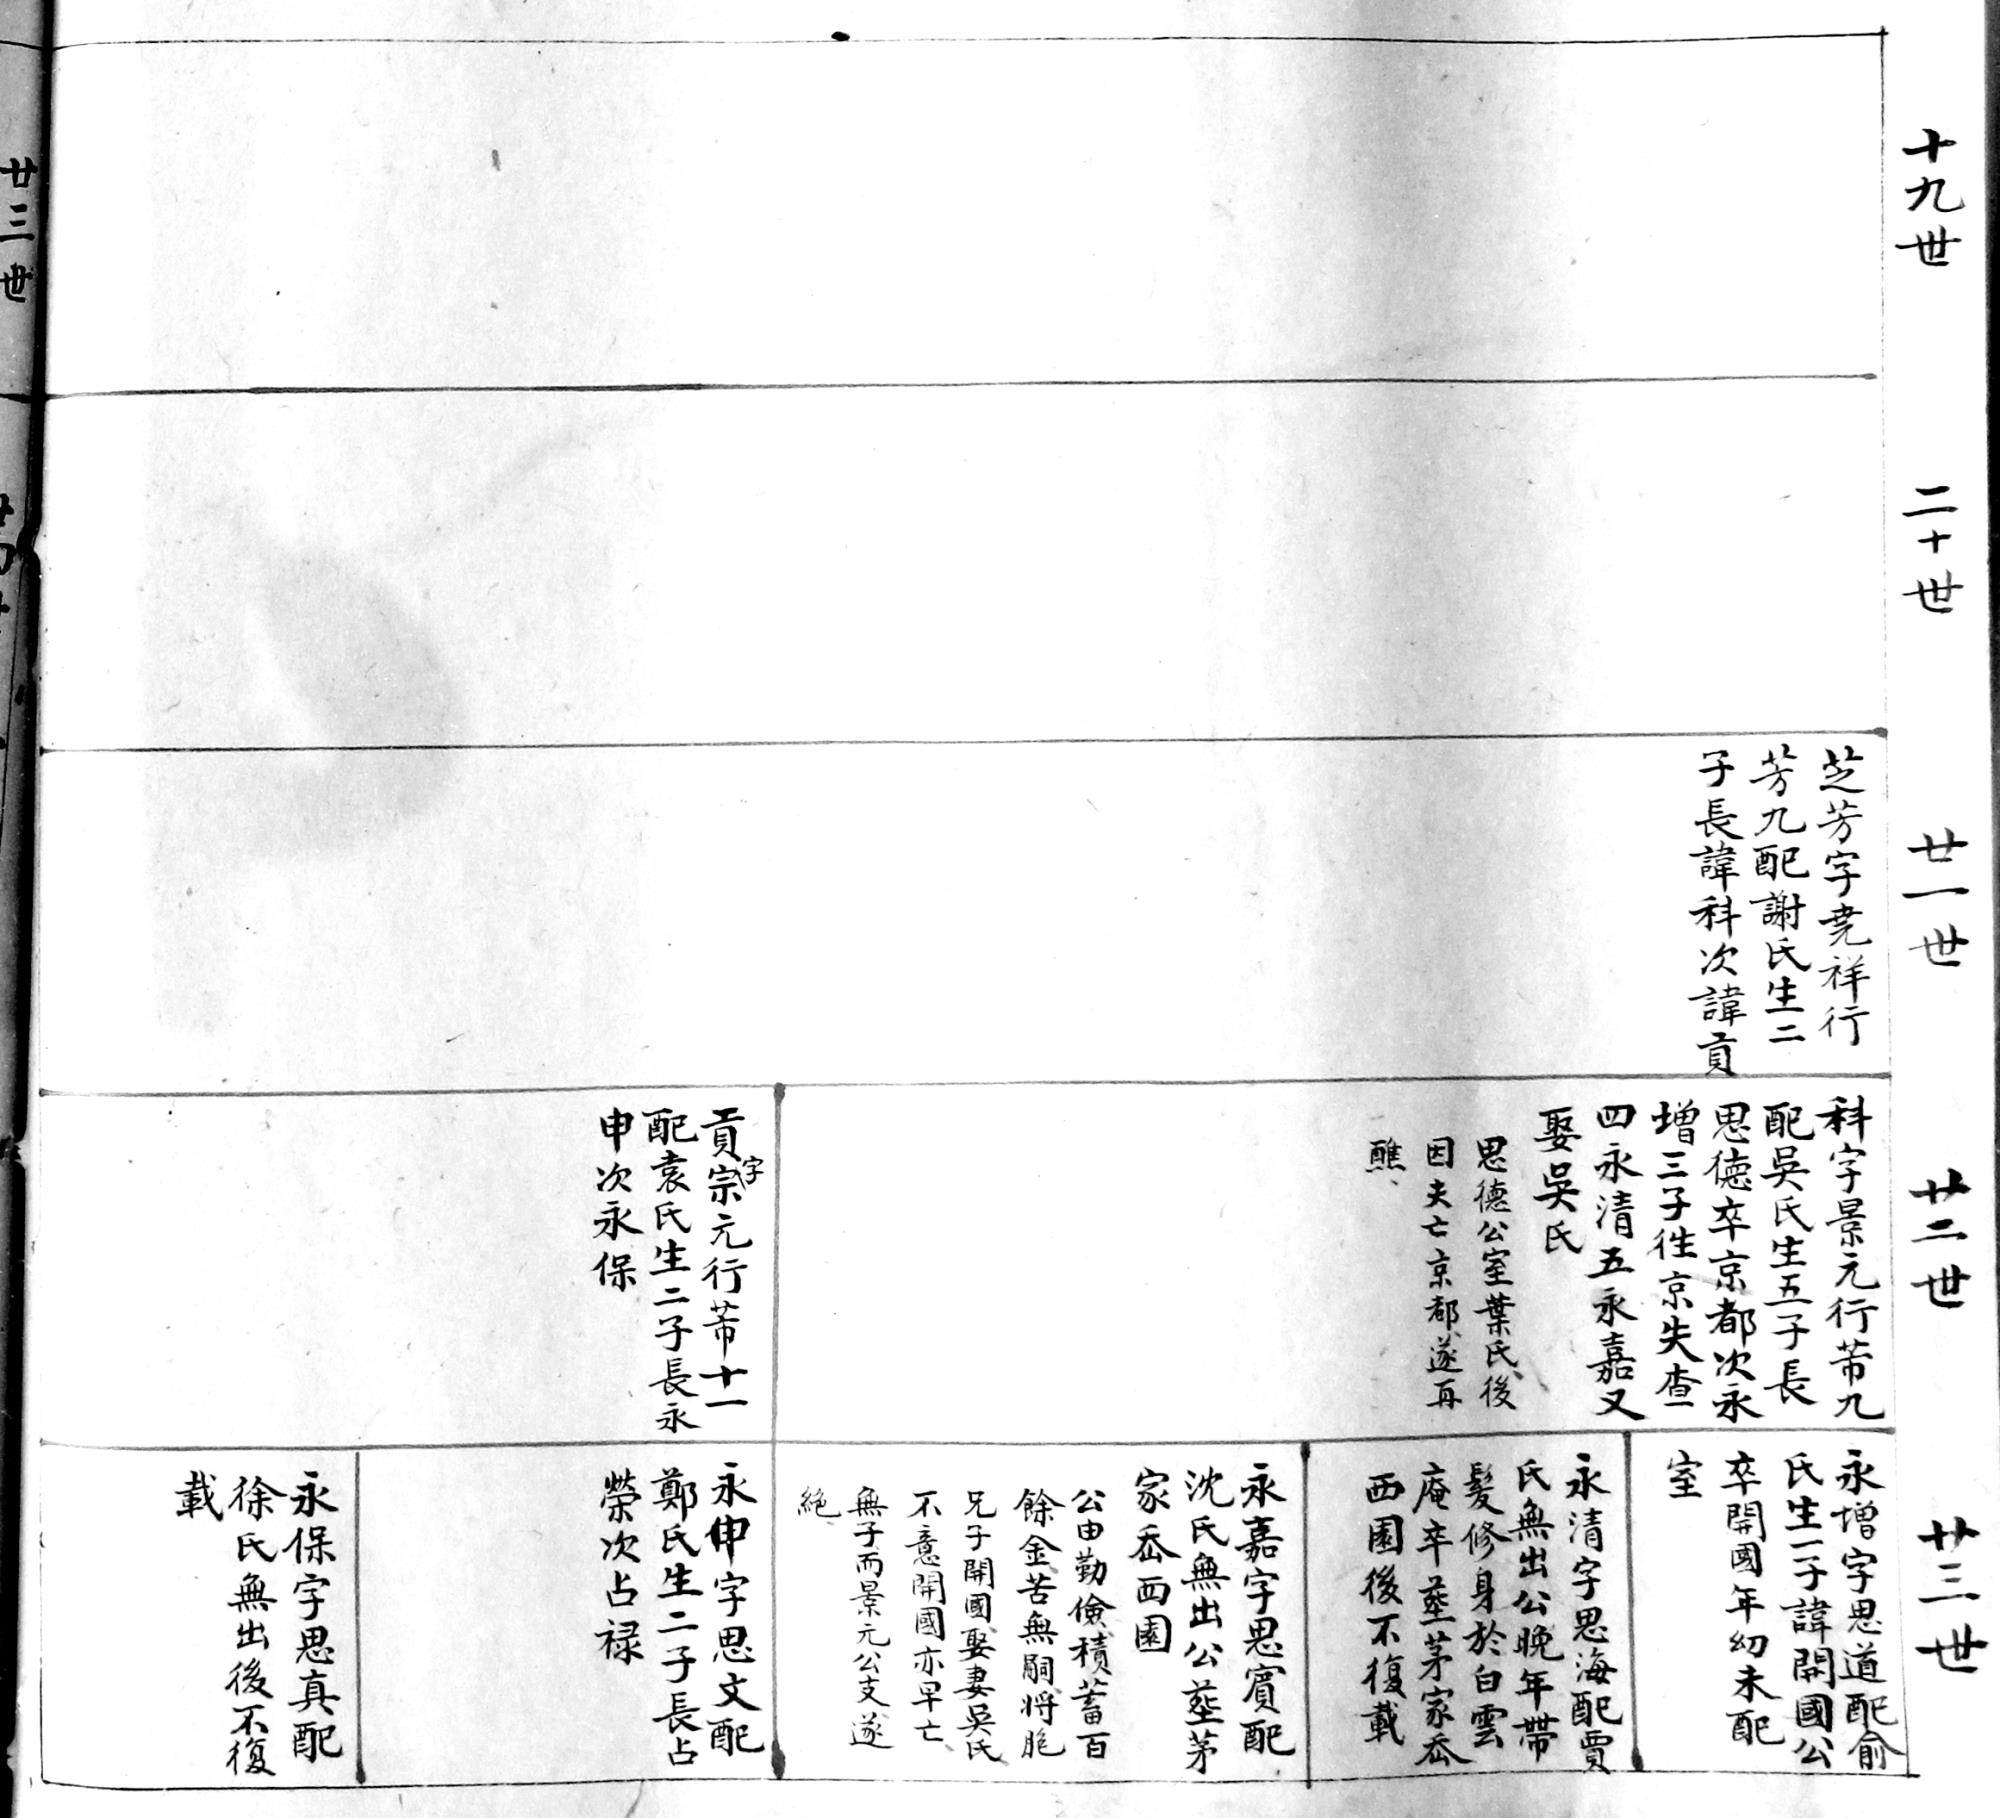 十九世
二十世
廿一世
芝芳字堯祥行
芳九配謝氏生二
子長諱科次諱貢
廿二世
科字景元行芾九
配吳氏生五子長
思德卒京都次永
增三子徃京失查
四永清五永嘉又
娶吳氏
思德公室葉氏、後
因夫亡京都、遂再
醮、
貢字宗元行芾十一
配袁氏生二子長永
申次永保
廿三世
永增字思道配俞
氏生一子諱開國公
卒開國年幼未配
室
永清字思海配賈
氏無出公晚年帶
髮修身於白雲
庵卒塟茅家岙
西園後不復載
永嘉字思賓配
沈氏無出公塟茅
家岙西園
公由勤儉、積蓄百
餘金、苦無嗣、將胞
兄子開國、娶妻吳氏、
不意開國亦早亡、
無子而景元公支、遂
絕、
永申字思文配
鄭氏生二子長占
榮次占禄
永保字思真配
徐氏無出後不復
載
廿三世